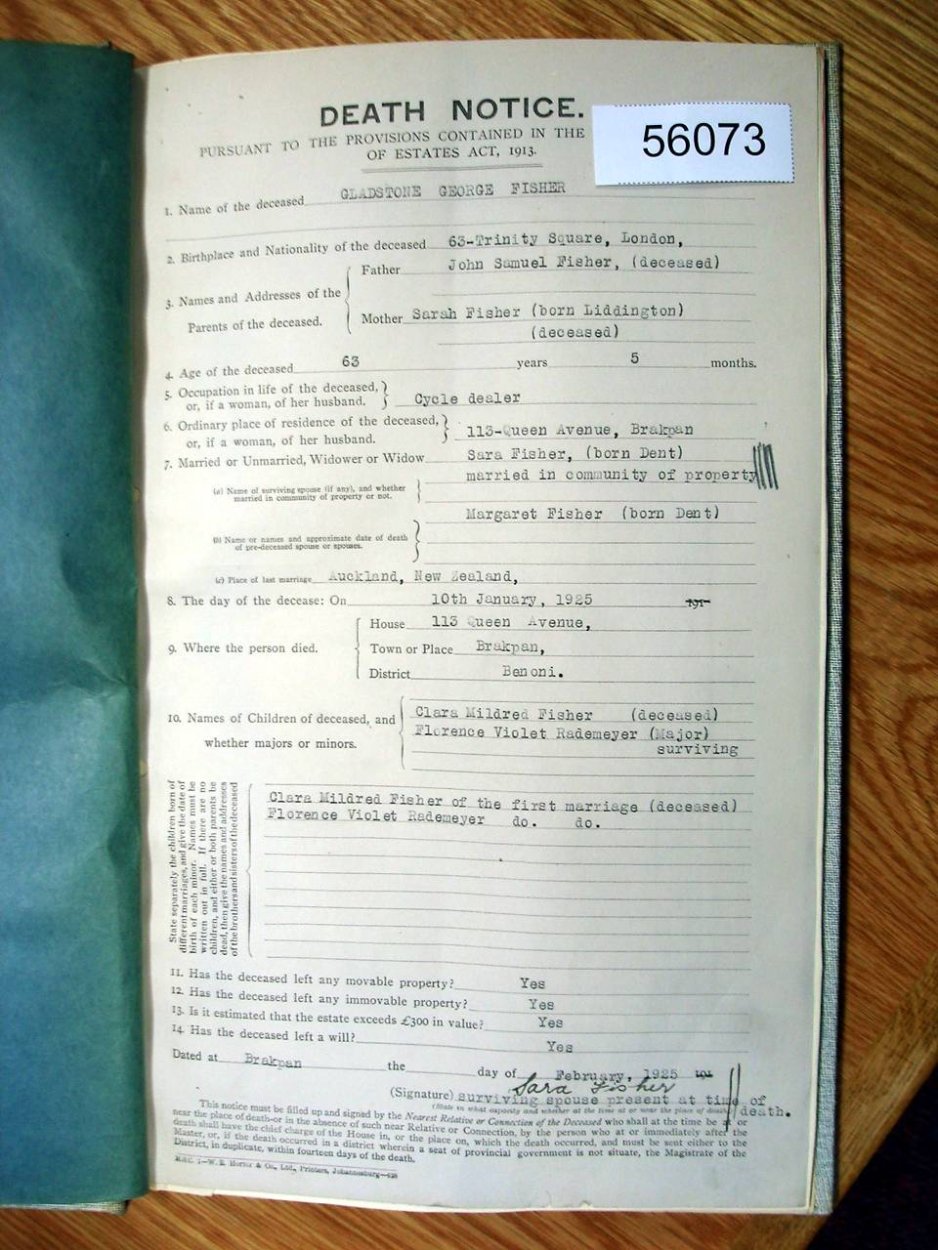 DEATH NOTICE.
56073
PURSUANT TO THE PROVISIONS CONTAINED IN THE
OF ESTATES ACT, 1913.
1. Name of the deceased GLADSTONE GEORGE FISHER
2. Birthplace and Nationality of the deceased 63-Trinity Square, London,
3. Names and Addresses of the Parents of the deceased.
Father John Samuel Fisher, (deceased)
Mother Sarah Fisher (born Liddington)
(deceased)
4. Age of the deceased 63 years 5 months.
5. Occupation in life of the deceased,
or, if a woman, of her husband. Cycle dealer
6. Ordinary place of residence of the deceased,
or, if a woman, of her husband. 113-Queen Avenue, Brakpan
7. Married or Unmarried, Widower or Widow Sara Fisher, (born Dent)
married in community of property
(a) Name of surviving spouse (if any), and whether
married in community of property or not.
Margaret Fisher (born Dent)
(b) Name or names and approximate date of death
of pre-deceased spouse or spouses.
(c) Place of last marriage Auckland, New Zealand,
8. The day of the decease: On 10th January, 1925 191
9. Where the person died.
House 113 Queen Avenue,
Town or Place Brakpan,
District Benoni.
10. Names of Children of deceased, and
whether majors or minors.
Clara Mildred Fisher (deceased)
Florence Violet Rademeyer (Major)
surviving
State separately the children born of
different marriages, and give the date of
birth of each minor. Names must be
written out in full. If there are no
children, and either or both parents be
dead, then give the names and addresses
of the brothers and sisters of the deceased
Clara Mildred Fisher of the first marriage (deceased)
Florence Violet Rademeyer do. do.
11. Has the deceased left any movable property? Yes
12. Has the deceased left any immovable property? Yes
13. Is it estimated that the estate exceeds £300 in value? Yes
14. Has the deceased left a will? Yes
Dated at Brakpan the day of February, 1925 191
Sara Fisher
(Signature) surviving spouse present at time of
death.
(State in what capacity and whether at the time at or near the place of death)
This notice must be filled up and signed by the Nearest Relative or Connection of the Deceased who shall at the time be at or
near the place of death—or in the absence of such near Relative or Connection, by the person who at or immediately after the
death shall have the chief charge of the House in, or the place on, which the death occurred, and must be sent either to the
Master, or, if the death occurred in a district wherein a seat of provincial government is not situate, the Magistrate of the
District, in duplicate, within fourteen days of the death.
Ltd., Printers, Johannesburg